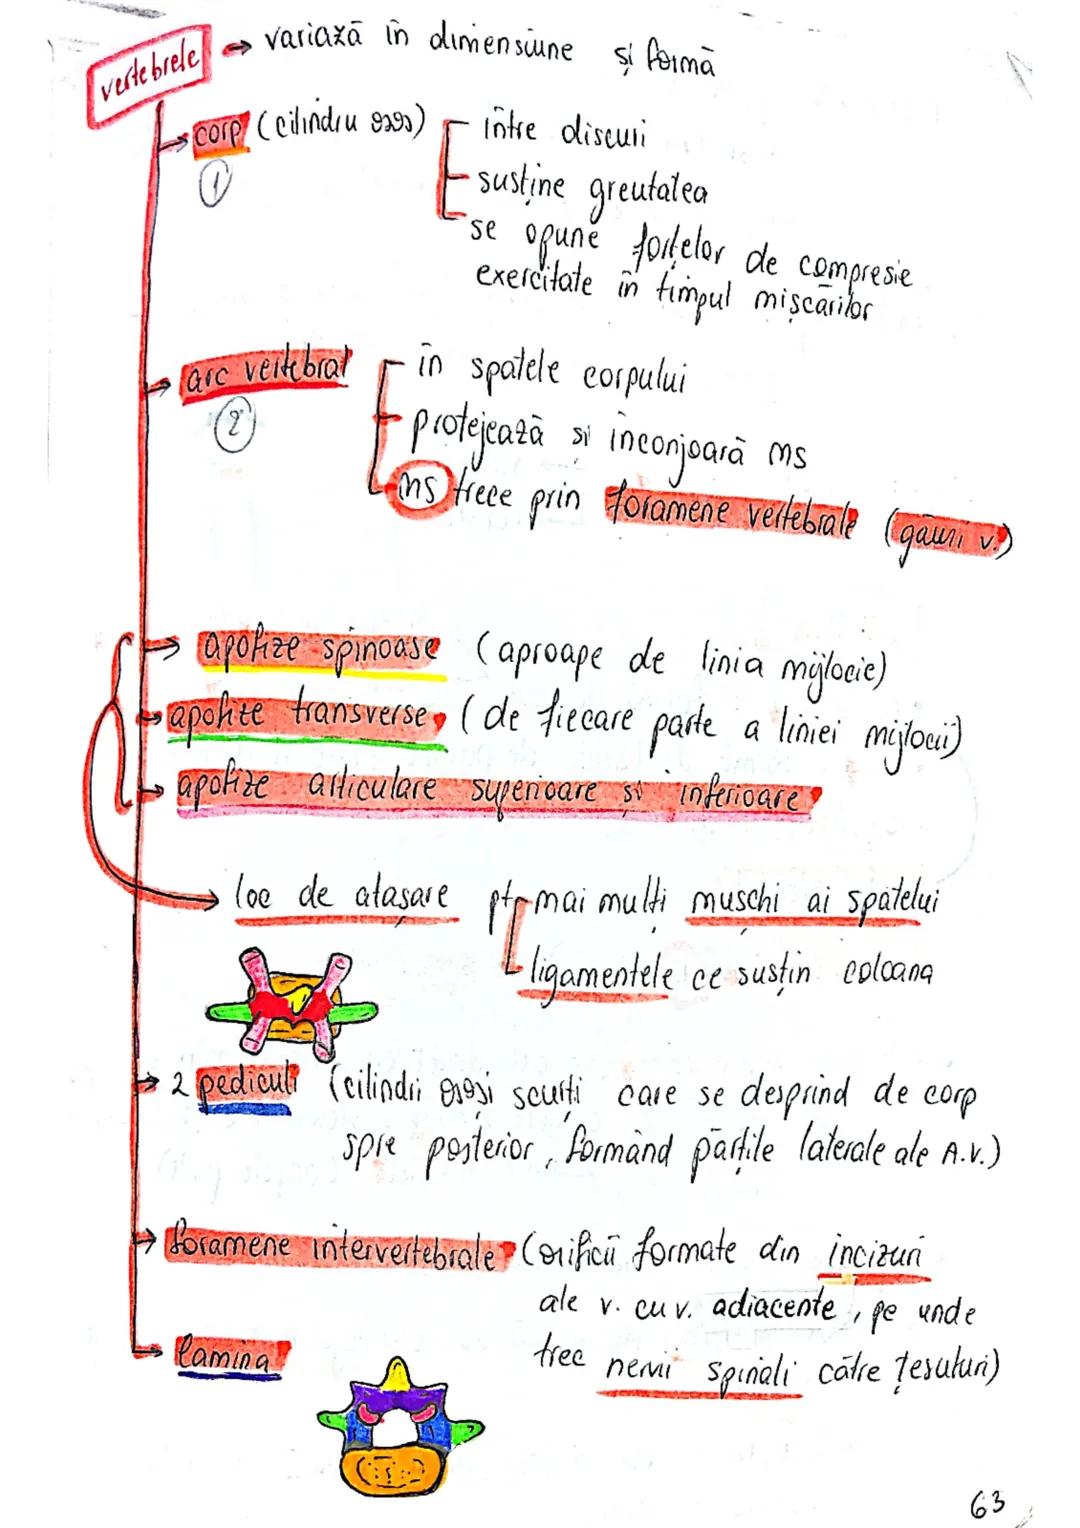 vertebrele → variază în dimensiune și formă
→ corp (cilindru osos) - între discuri
①
- susține greutatea
se opune forțelor de compresie
exercitate în timpul mișcărilor
→ arc vertebral - în spatele corpului
②
- protejează și înconjoară ms
- ms trece prin foramene vertebrale (găuri v.)
→ apofize spinoase (aproape de linia mijlocie)
→ apofize transverse (de fiecare parte a liniei mijlocii)
→ apofize articulare superioare și inferioare
→ loc de atașare ptr mai mulți muschi ai spatelui
ligamentele ce susțin coloana
→ 2 pediculi (cilindri osoși scurți care se desprind de corp
spre posterior, formând părțile laterale ale A.V.)
→ foramene intervertebrale (orificii formate din incizuri
ale v. cu v. adiacente, pe unde
trec nervii spinali către țesuturi)
→ lamina
63